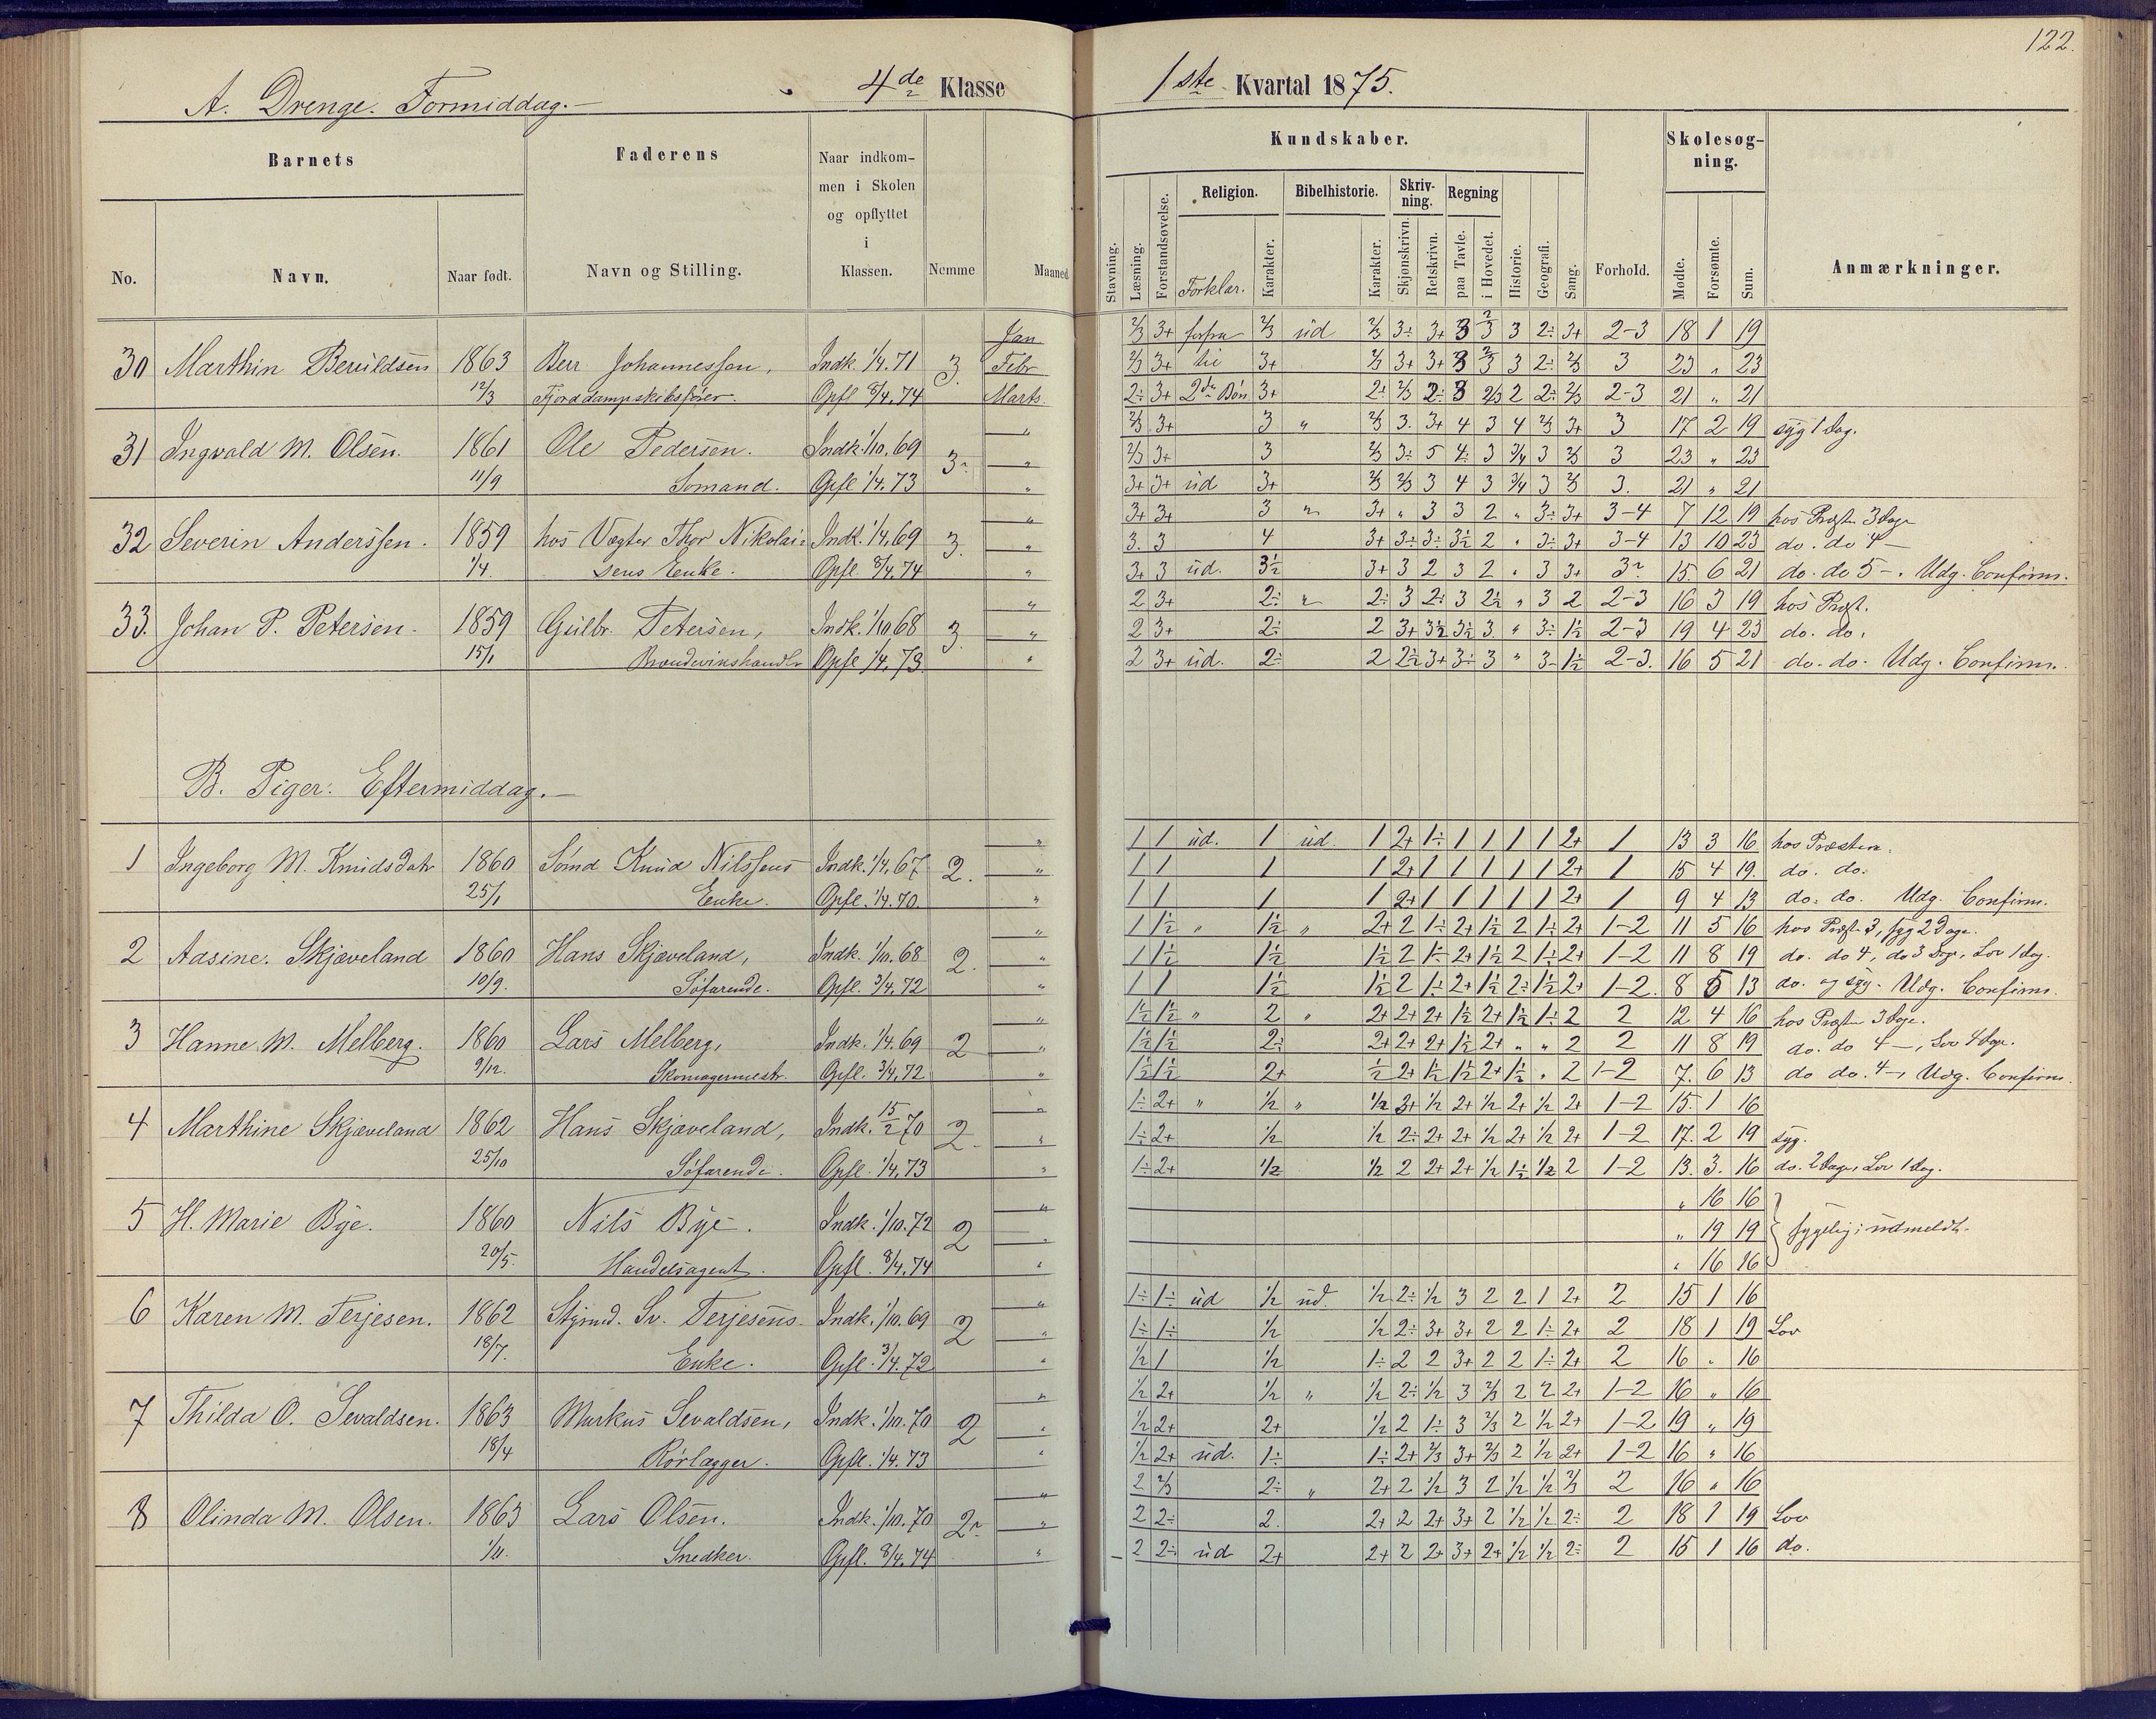 122.
A. Drenge. Formiddag.
4de Klasse
1ste Kvartal 1875.
Barnets
Faderens
Naar indkom-
men i Skolen
og opflyttet
i
Klassen.
No.
Navn.
Naar født.
Navn og Stilling.
Nemme
Maaned
Kundskaber.
Skolesøg-
ning.
Religion.
Bibelhistorie.
Skriv-
ning.
Regning
Stavning.
Læsning.
Forstandsøvelse.
Forklar.
Karakter.
Karakter.
Skjønskrivn.
Retskrivn.
paa Tavle.
i Hovedet.
Historie.
Geografi.
Sang.
Forhold.
Mødte.
Forsømte.
Sum.
Anmærkninger.
30 Marthin Beruldsen 1863 Berr Johannessen, Indk. 1/4.71 3. Jan
Febr
12/3 Fjorddampskibsfører. Opfl 8/4.74 Marts
2/3 3+ forfra 2/3 ud 2/3 3÷ 3+ 3 2/3 3 2÷ 3+ 2-3 18 1 19
2/3 3+ til 3+ 2/3 3+ 3+ 3 2/3 3 2÷ 2/3 3 23 " 23
2÷ 3+ 2den Bøn 3+ 2÷ 2/3 2÷ 3 2/3 2 2÷ 2/3 2-3 21 " 21
31 Ingvald M. Olsen. 1861 Ole Pedersen. Indk. 1/10.69 3
11/9 Sømand. Opfl 1/4.73
2/3 3+ 3 " 2/3 3. 3+ 4 3 4 2/3 3+ 3 17 2 19 syg 1 Dag.
2/3 3+ 3 2/3 3÷ 5 4÷ 3 3/4 3 2/3 3 23 " 23
3+ 3+ ud 3+ 2/3 2/3 3 4 3 3/4 3 2/3 3. 21 " 21
32 Severin Anderssen. 1859 hos Vægter Thor Nikolai= Indk. 1/4.69 3.
1/4 sens Enke. Opfl. 8/4.74
3+ 3+ 3 " 3+ " 3 3 2 " 3÷ 3+ 3-4 7 12 19 hos Præsten 3 Dage
3. 3 4 3+ 3÷ 3÷ 3½ 2 " 3÷ 3+ 3-4 13 10 23 do. do 4 —
3+ 3 ud. 3½ 3+ 3 2 3 2 " 3 3+ 3 15. 6 21 do. do 5 —. Udg. Confirm.
33. Johan P. Petersen. 1859 Gulbr. Petersen, Indk. 1/10.68 3.
15/1 Brændevinshandlr Opfl 1/4.73
2 3+ 2÷ " 2÷ 3 2÷ 3 2½ " 3 2 2-3 16 3 19 hos Præst.
2 3+ 2÷ 2 3+ 3½ 3½ 3. " 3÷ 1½ 2-3 19 4 23 do. do.
2 3+ ud. 2÷ 2 2½ 3+ 3÷ 3 " 3- 1½ 2-3. 16 5 21 do. do. Udg. Confirm.
B. Piger: Eftermiddag.
1 Ingeborg M. Knudsdatr 1860 Sømd Knud Nilssens Indk. 1/4.67 2.
25/1 Enke. Opfl. 1/4.70.
1 1 ud. 1 ud. 1 2+ 1÷ 1 1 1 1 2+ 1 13 3 16 hos Præsten.
1 1 1 1 2+ 1 1 1 1 1 2+ 1 15 4 19. do. do.
1 1 1 1 2+ 1 1 1 1 1 2+ 1 9 4 13 do. do. Udg. Confirm.
2 Aasine. Skjæveland 1860 Hans Skjæveland, Indk. 1/10.68 2.
10/9. Søfarende. Opfl. 3/4.72
1 1½ " 1½ " 2+ 2 1÷ 2+ 1½ 2 1÷ 2+ 1-2 11 5 16 hos Præst. 3, syg 2 Dage.
1 1½ 1½ 1½ 2 1÷ 2+ 1½ 2 1÷ 2+ 1-2 11 8 19 do. do 4, do 3 Dage, Lov 1 Dag.
1 1 1½ 1½ 2 1÷ 2+ 1½ 2÷ 1½ 2+ 1-2. 8 5 13 do. og syg. Udg. Confirm.
3 Hanne M. Melberg. 1860 Lars Melberg, Indk. 1/4.69 2
9/12. Skomagermestr. Opfl. 3/4.72
1½ 1½ " 2 " 2+ 2+ 2+ 1½ 2+ 1½ 1÷ 2 2 12 4 16 hos Præsten 3 Dage.
1½ 1½ 2÷ 2+ 2+ 2+ 1½ 2+ " " 2 2 11 8 19 do. do 4 —, Lov 4 Dage.
1½ 1½ 2+ ½ 2+ 1½ 1½ 2+ 1½ " 2 1-2 7. 6 13 do do. 4 —, Udg. Confirm.
4 Marthine Skjæveland 1862 Hans Skjæveland, Indk. 15/2 70 2.
25/10 Søfarende. Opfl. 1/4.73
1÷ 2+ " ½ " ½ 3+ ½ 2+ ½ 2+ ½ 2+ 1-2 15. 1 16
1÷ 2+ ½ ½ 2÷ 2+ 2+ ½ 2+ ½ 2+ 1-2 17. 2 19 syg.
1÷ 2+ ½ ½ 2 2+ 2+ ½ 1÷ ½ 2 1-2 13. 3. 16 do. 2 Dage, Lov 1 Dag.
5 H. Marie Bye. 1860 Nils Bye. Indk. 1/10.72 2
20/5. Handelsagent. Opfl. 8/4.74
" 16 16
" 19 19 sygelig; udmeldt.
" 16 16
6 Karen M. Terjesen. 1862 Styrmd. Sv. Terjesens Indk. 1/10.69 2
18/7. Enke. Opfl. 3/4.72
1÷ 1÷ ud ½ ud. ½ 2÷ ½ 3 2 2 1 2+ 2 15 1 16
1÷ 1÷ ½ ½ 2÷ 3+ 3+ 2 2 1÷ 2+ 2 18 1 19 Lov
½ 1 ½ 1÷ 2 2 3+ 2 2 1÷ 2+ 2 16 " 16
7 Thilda O. Sevaldsen. 1863 Markus Sevaldsen, Indk. 1/10.70 2
18/4 Rørlægger. Opfl. 1/4.73
½ 2+ ½ " ½ 2÷ ½ 3 2/3 2 2 2+ 1-2 16 " 16
½ 2+ 2+ ½ 2 1÷ 3 2/3 2 ½ 2+ 1-2 19 " 19
½ 2+ ud. 1÷ 1÷ 2+ 2/3 3+ 2/3 2 ½ 2+ 1-2 16 " 16
8 Olinda M. Olsen. 1863 Lars Olsen. Indk. 1/10.70 2
1/11. Snedker. Opfl. 8/4.74
2 2/3 2÷ " 2+ 2 ½ 3 2 ½ ½ 2/3 2 16 " 16
2 2÷ 2. 2+ 2 2+ 3+ 2 ½ ½ 2÷ 2 18 1 19 Lov
2 2÷ ud 2+ 2+ 2 2+ 3+ 2+ ½ ½ 2÷ 2 15 1 16 do.